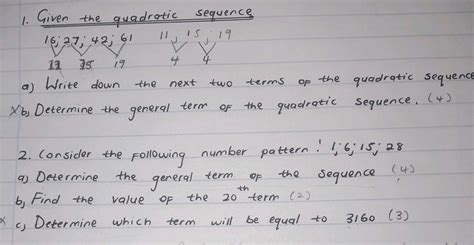 1. Given the quadratic sequence
16;27; 42; 61 11; 15; 19
11 15 19 4 4
a) Write down the next two terms of the quadratic sequence
Xb) Determine the general term of the quadratic sequence. (4)
2. Consider the following number pattern: 1;6;15;28
a) Determine the general term of the sequence (4)
b) Find the value of the 20th term (2)
x c) Determine which term will be equal to 3160 (3)